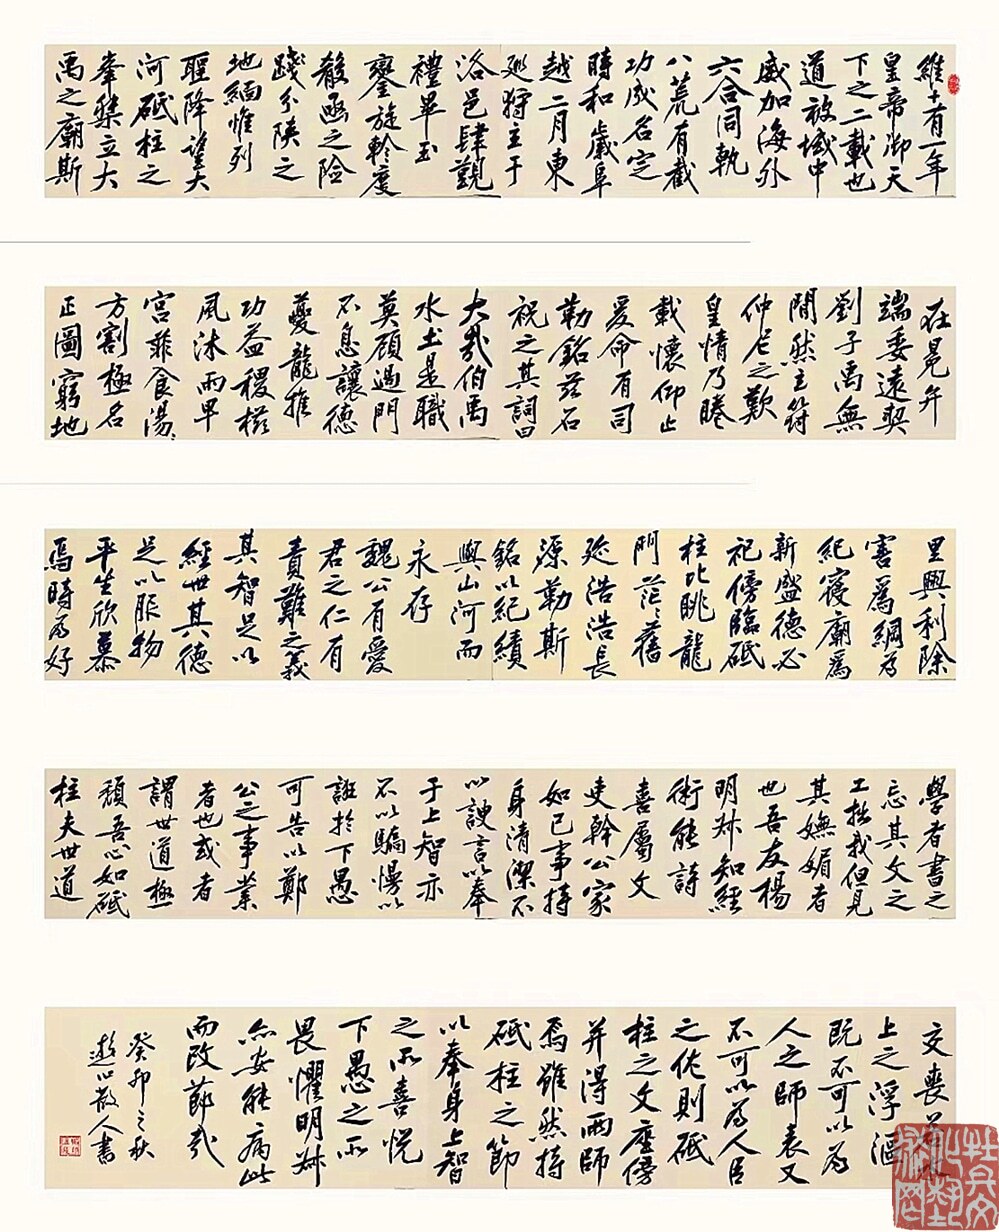 維十有一年
皇帝御天
下之二載也
道被域中
威加海外
六合同軌
八荒有截
功成名定
時和歲阜
越二月東
巡狩主于
洛邑肆覲
禮畢玉
鑾旋軫度
殽函之險
踐分陝之
地緬惟列
聖降望大
河砥柱之
峯桀立大
禹之廟斯
在冕弁
端委遠契
劉子禹無
間然主符
仲尼之歎
皇情乃睠
載懷仰止
爰命有司
勒銘茲石
祝之其詞曰
大哉伯禹
水土是職
莫顧過門
不息讓德
夔龍推
功益稷櫛
風沐雨卑
宮菲食湯〻
方割極名
正圖窮地
里興利除
害為綱為
紀寢廟為
新盛德必
祀傍臨砥
柱北眺龍
門茫〻舊
跡浩浩長
源勒斯
銘以紀績
與山河而
永存
魏公有愛
君之仁有
責難之義
其智足以
經世其德
足以服物
平生欣慕
焉時為好
學者書之
忘其文之
工拙我但見
其嫵媚者
也吾友楊
明叔知經
術能詩
喜屬文
吏幹公家
如已事持
身清潔不
以諛言以奉
于上智亦
不以驕慢以
誑於下愚
可告以鄭
公之事業
者也或者
謂世道極
頹吾心如砥
柱夫世道
交喪若水
上之浮漚
既不可以為
人之師表又
不可以為人臣
之佐則砥
柱之文座傍
并得兩師
焉雖然持
砥柱之節
以奉身上智
之所喜悅
下愚之所
畏懼明叔
亦安能病此
而改節哉
癸卯之秋
散人書